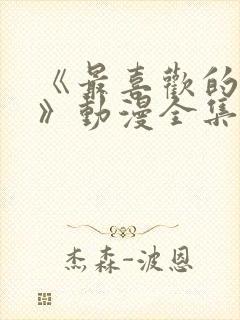 《最喜歡的
》動漫全集
杰森-波恩